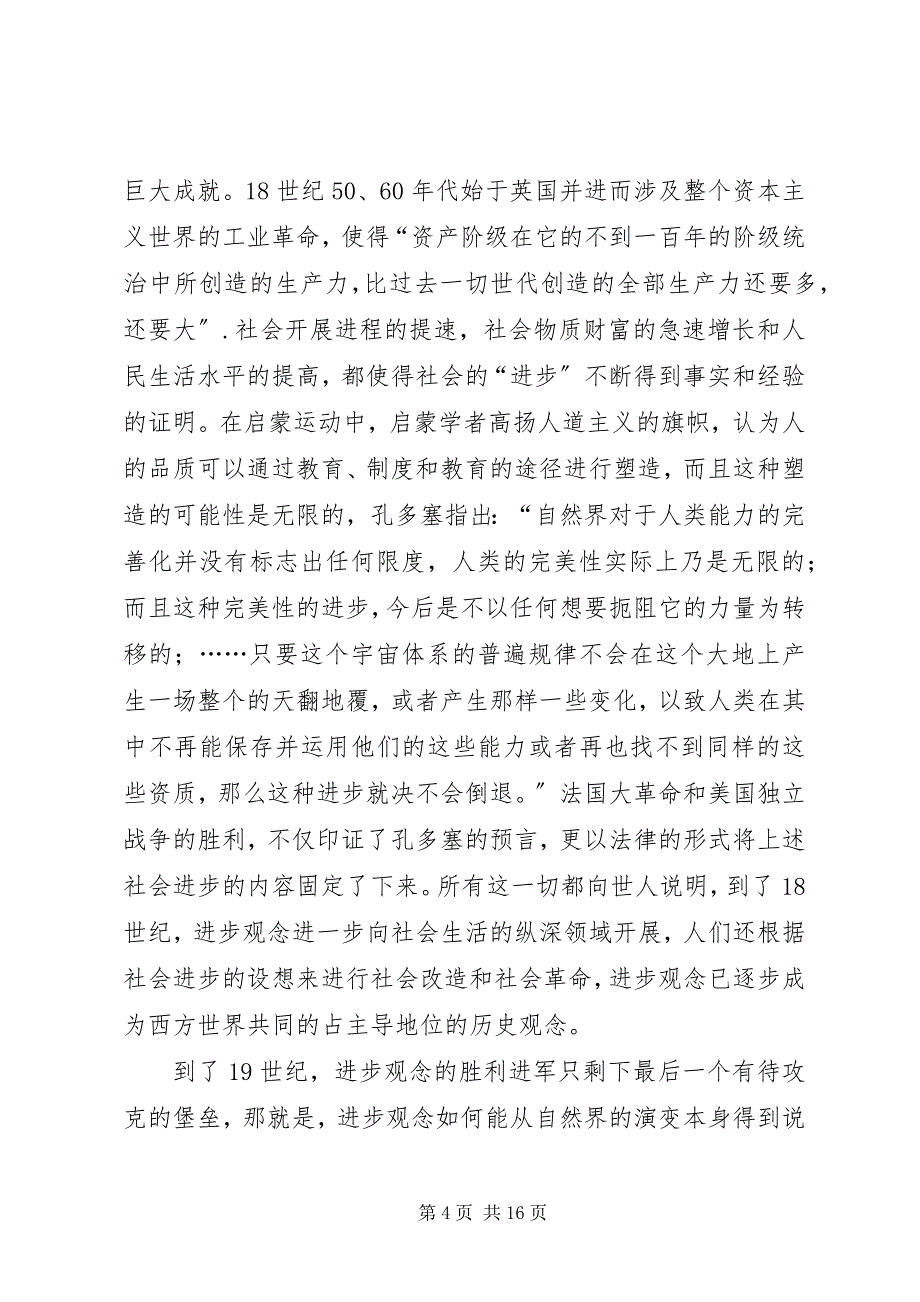 巨大成就。18 世纪 50、60 年代始于英国并进而涉及整个资本主
义世界的工业革命，使得“资产阶级在它的不到一百年的阶级统
治中所创造的生产力，比过去一切世代创造的全部生产力还要多，
还要大〞.社会开展进程的提速，社会物质财富的急速增长和人
民生活水平的提高，都使得社会的“进步〞不断得到事实和经验
的证明。在启蒙运动中，启蒙学者高扬人道主义的旗帜，认为人
的品质可以通过教育、制度和教育的途径进行塑造，而且这种塑
造的可能性是无限的，孔多塞指出：“自然界对于人类能力的完
善化并没有标志出任何限度，人类的完美性实际上乃是无限的；
而且这种完美性的进步，今后是不以任何想要扼阻它的力量为转
移的；……只要这个宇宙体系的普遍规律不会在这个大地上产
生一场整个的天翻地覆，或者产生那样一些变化，以致人类在其
中不再能保存并运用他们的这些能力或者再也找不到同样的这
些资质，那么这种进步就决不会倒退。〞法国大革命和美国独立
战争的胜利，不仅印证了孔多塞的预言，更以法律的形式将上述
社会进步的内容固定了下来。所有这一切都向世人说明，到了 18
世纪，进步观念进一步向社会生活的纵深领域开展，人们还根据
社会进步的设想来进行社会改造和社会革命，进步观念已逐步成
为西方世界共同的占主导地位的历史观念。
到了 19 世纪，进步观念的胜利进军只剩下最后一个有待攻
克的堡垒，那就是，进步观念如何能从自然界的演变本身得到说
第 4 页 共 16 页